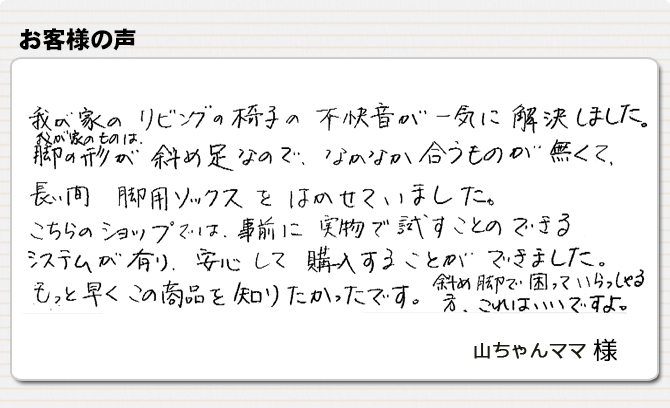 お客様の声
我が家の リビングの椅子の 不快音が 一気に 解決しました。
我が家のものは、
脚の形が 斜め足なので、なかなか 合うものが 無くて、
長い間 脚用ソックスを はかせていました。
こちらのショップでは、事前に 実物で 試すことのできる
システムが有り、安心して 購入することが できました。
もっと早く この商品を 知りたかったです。
斜め脚で 困っていらっしゃる
方、これはいいですよ。
山ちゃんママ 様